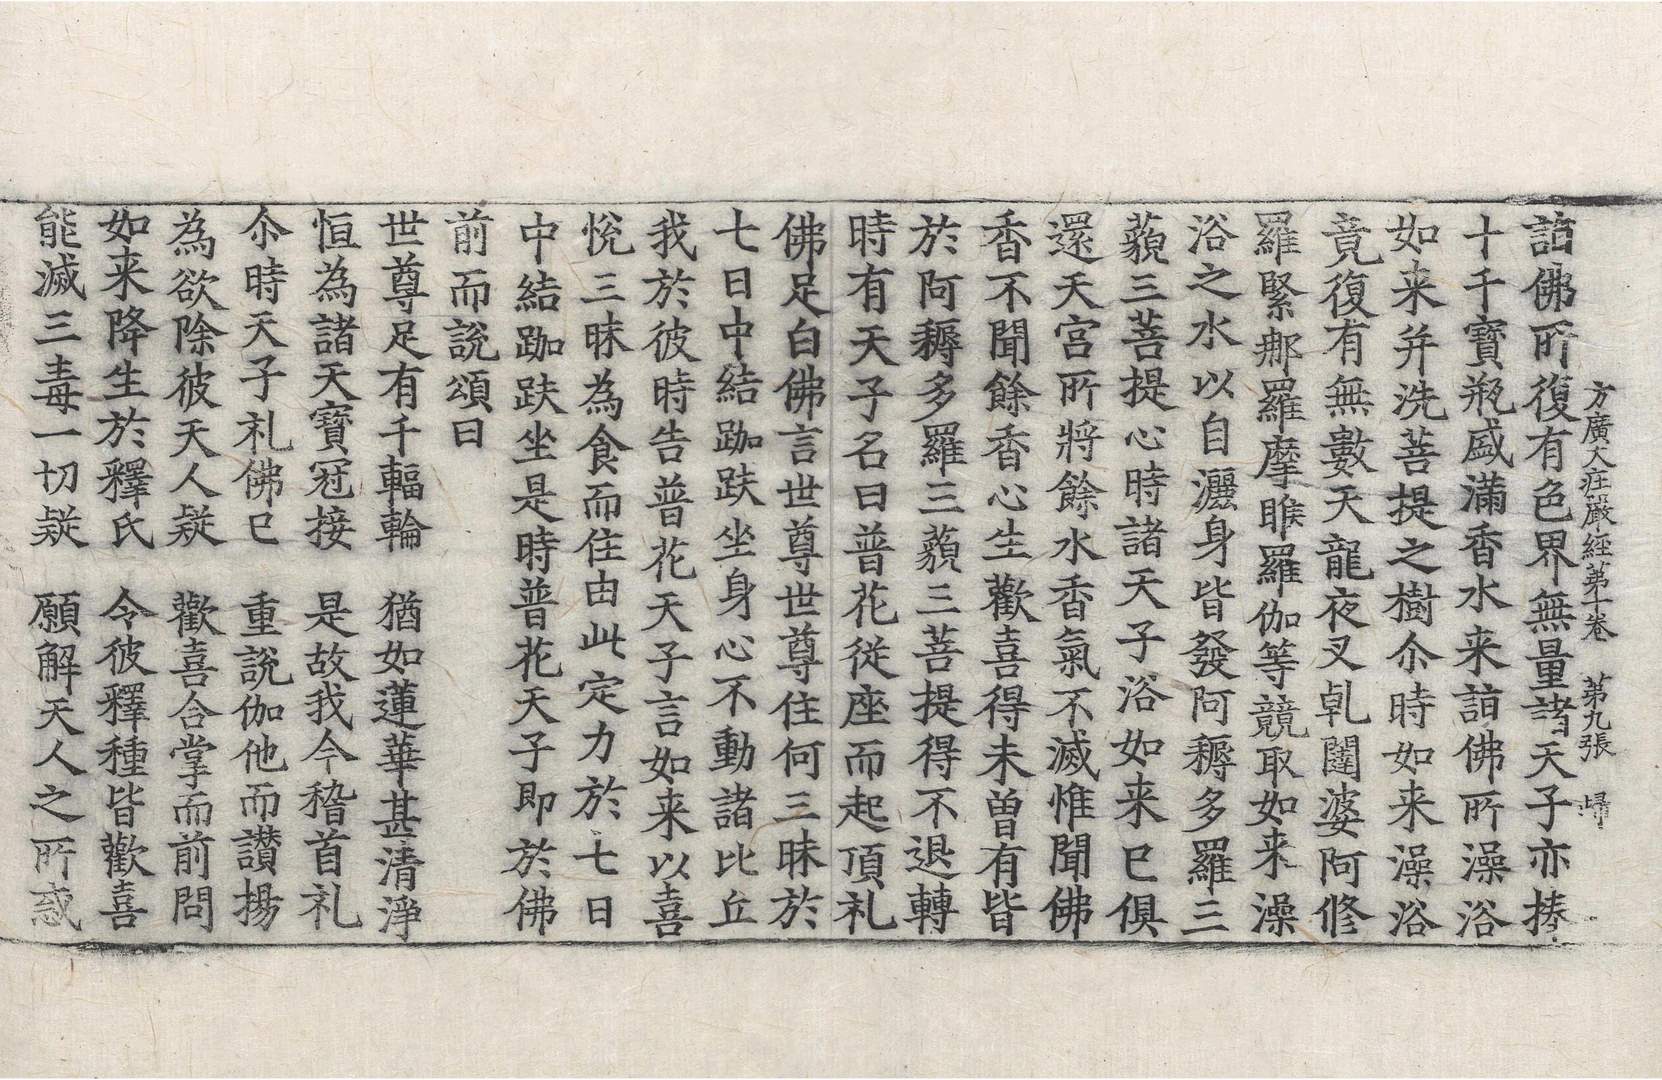 方廣大荘嚴經第十卷　第九張　歸
詣佛所復有色界無量諸天子亦捧
十千寶瓶盛滿香水来詣佛所澡浴
如来并洗菩提之樹尒時如来澡浴
竟復有無數天龍夜叉乹闥婆阿修
羅緊那羅摩睺羅伽等競取如来澡
浴之水以自灑身皆發阿耨多羅三
藐三菩提心時諸天子浴如来已俱
還天宮所將餘水香氣不滅惟聞佛
香不聞餘香心生歡喜得未曽有皆
於阿耨多羅三藐三菩提得不退轉
時有天子名曰普花従座而起頂礼
佛足白佛言世尊世尊住何三昧於
七日中結跏趺坐身心不動諸比丘
我於彼時告普花天子言如来以喜
悅三昧為食而住由此定力於七日
中結跏趺坐是時普花天子即於佛
前而說頌曰
世尊足有千輻輪　猶如蓮華甚清淨
恒為諸天寶冠接　是故我今稽首礼
尒時天子礼佛已　重說伽他而讃揚
為欲除彼天人疑　歡喜合掌而前問
如来降生於釋氏　令彼釋種皆歡喜
能滅三毒一切疑　願解天人之所惑